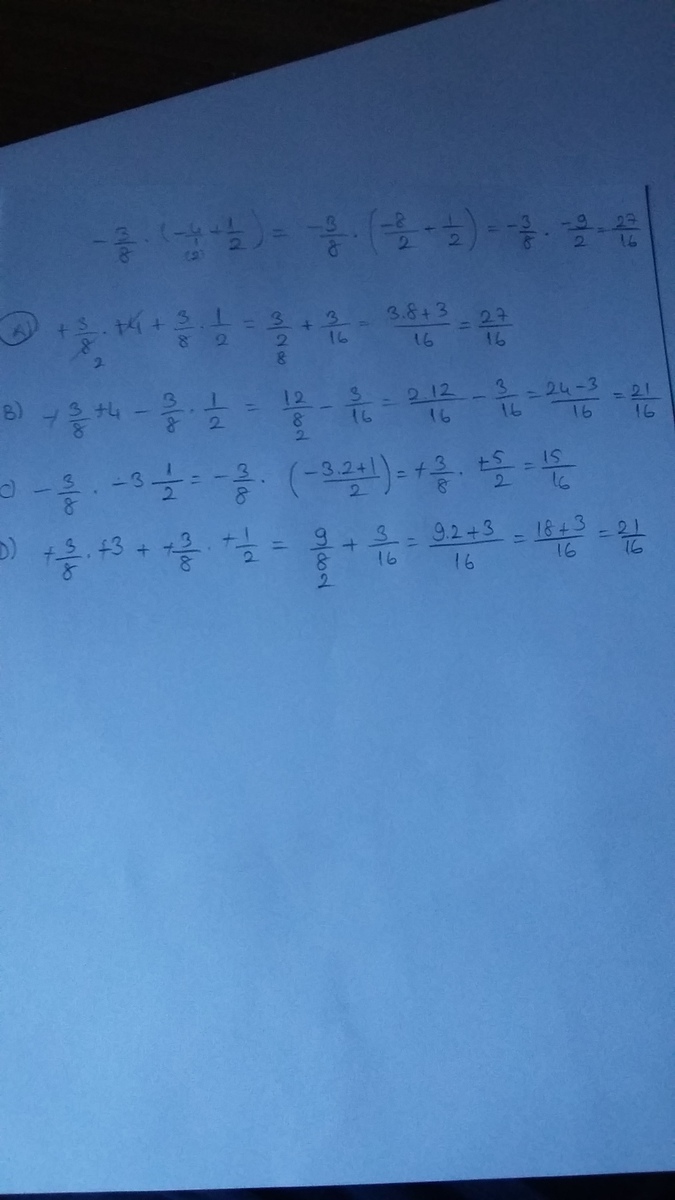 -3/8 · (-4/1 + 1/2) = -3/8 · (-8/2 + 1/2) = -3/8 · -9/2 = 27/16
(2)
A) +3/8 · +4 + 3/8 · 1/2 = 3/2 + 3/16 = 3.8+3/16 = 27/16
2 8
B) +3/8 +4 - 3/8 · 1/2 = 12/8 - 3/16 = 2.12/16 - 3/16 = 24-3/16 = 21/16
2
C) -3/8 · -3 1/2 = -3/8 · (-3.2+1/2) = +3/8 · +5/2 = 15/16
D) +3/8 · +3 + +3/8 · +1/2 = 9/8 + 3/16 = 9.2+3/16 = 18+3/16 = 21/16
2